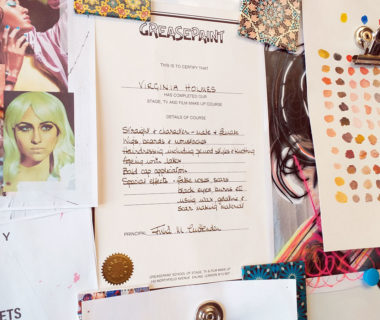 GREASEPAINT
THIS IS TO CERTIFY THAT
VIRGINIA HOLMES
HAS COMPLETED OUR
STAGE, TV AND FILM MAKE UP COURSE
DETAILS OF COURSE
Straight & character - male & female
Wigs, beards & moustaches
Hairdressing including period styles & knotting
Ageing with latex
Bald cap application
Special effects - false noses scars
black eyes burns etc
using wax gelatine &
scar making material
PRINCIPAL
GREASEPAINT SCHOOL OF STAGE, TV & FILM MAKE UP
Y
ETS